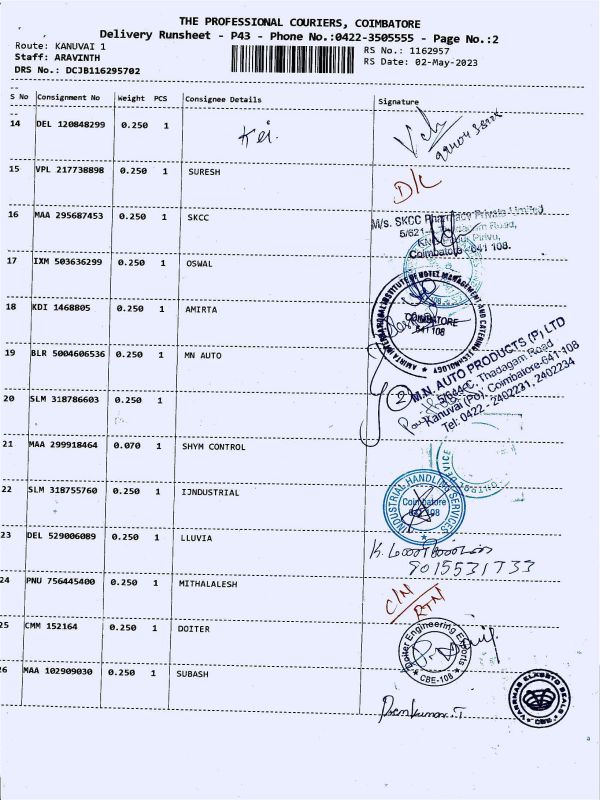 THE PROFESSIONAL COURIERS, COIMBATORE
Delivery Runsheet - P43 - Phone No.:0422-3505555 - Page No.:2
Route: KANUVAI 1
RS No.: 1162957
Staff: ARAVINTH
RS Date: 02-May-2023
DRS No.: DCJB116295702
S No Consignment No Weight PCS Consignee Details Signature
14 DEL 120848299 0.250 1
15 VPL 217738898 0.250 1 SURESH
D/L
16 MAA 295687453 0.250 1 SKCC
M/s. SKCC Pharmacy Private Limited
Thadagam Road,
Pirivu,
Coimbatore - 641 108.
17 IXM 503636299 0.250 1 OSWAL
18 KDI 1468805 0.250 1 AMIRTA
AMIRTA INTERNATIONAL INSTITUTE OF HOTEL MANAGEMENT AND CATERING TECHNOLOGY
COIMBATORE
641 108
19 BLR 5004606536 0.250 1 MN AUTO
2
M.N. AUTO PRODUCTS (P) LTD
Thadagam Road
Kanuvai (Po), Coimbatore-641-108
Tel: 0422 - 2402231, 2402234
20 SLM 318786603 0.250 1
21 MAA 299918464 0.070 1 SHYM CONTROL
22 SLM 318755760 0.250 1 IJNDUSTRIAL
INDUSTRIAL HANDLING SERVICES
Coimbatore
641 108
23 DEL 529006089 0.250 1 LLUVIA
24 PNU 756445400 0.250 1 MITHALALESH
C/N
RTN
25 CMM 152164 0.250 1 DOITER
Doiter Engineering Exports
CBE-108
26 MAA 102909030 0.250 1 SUBASH